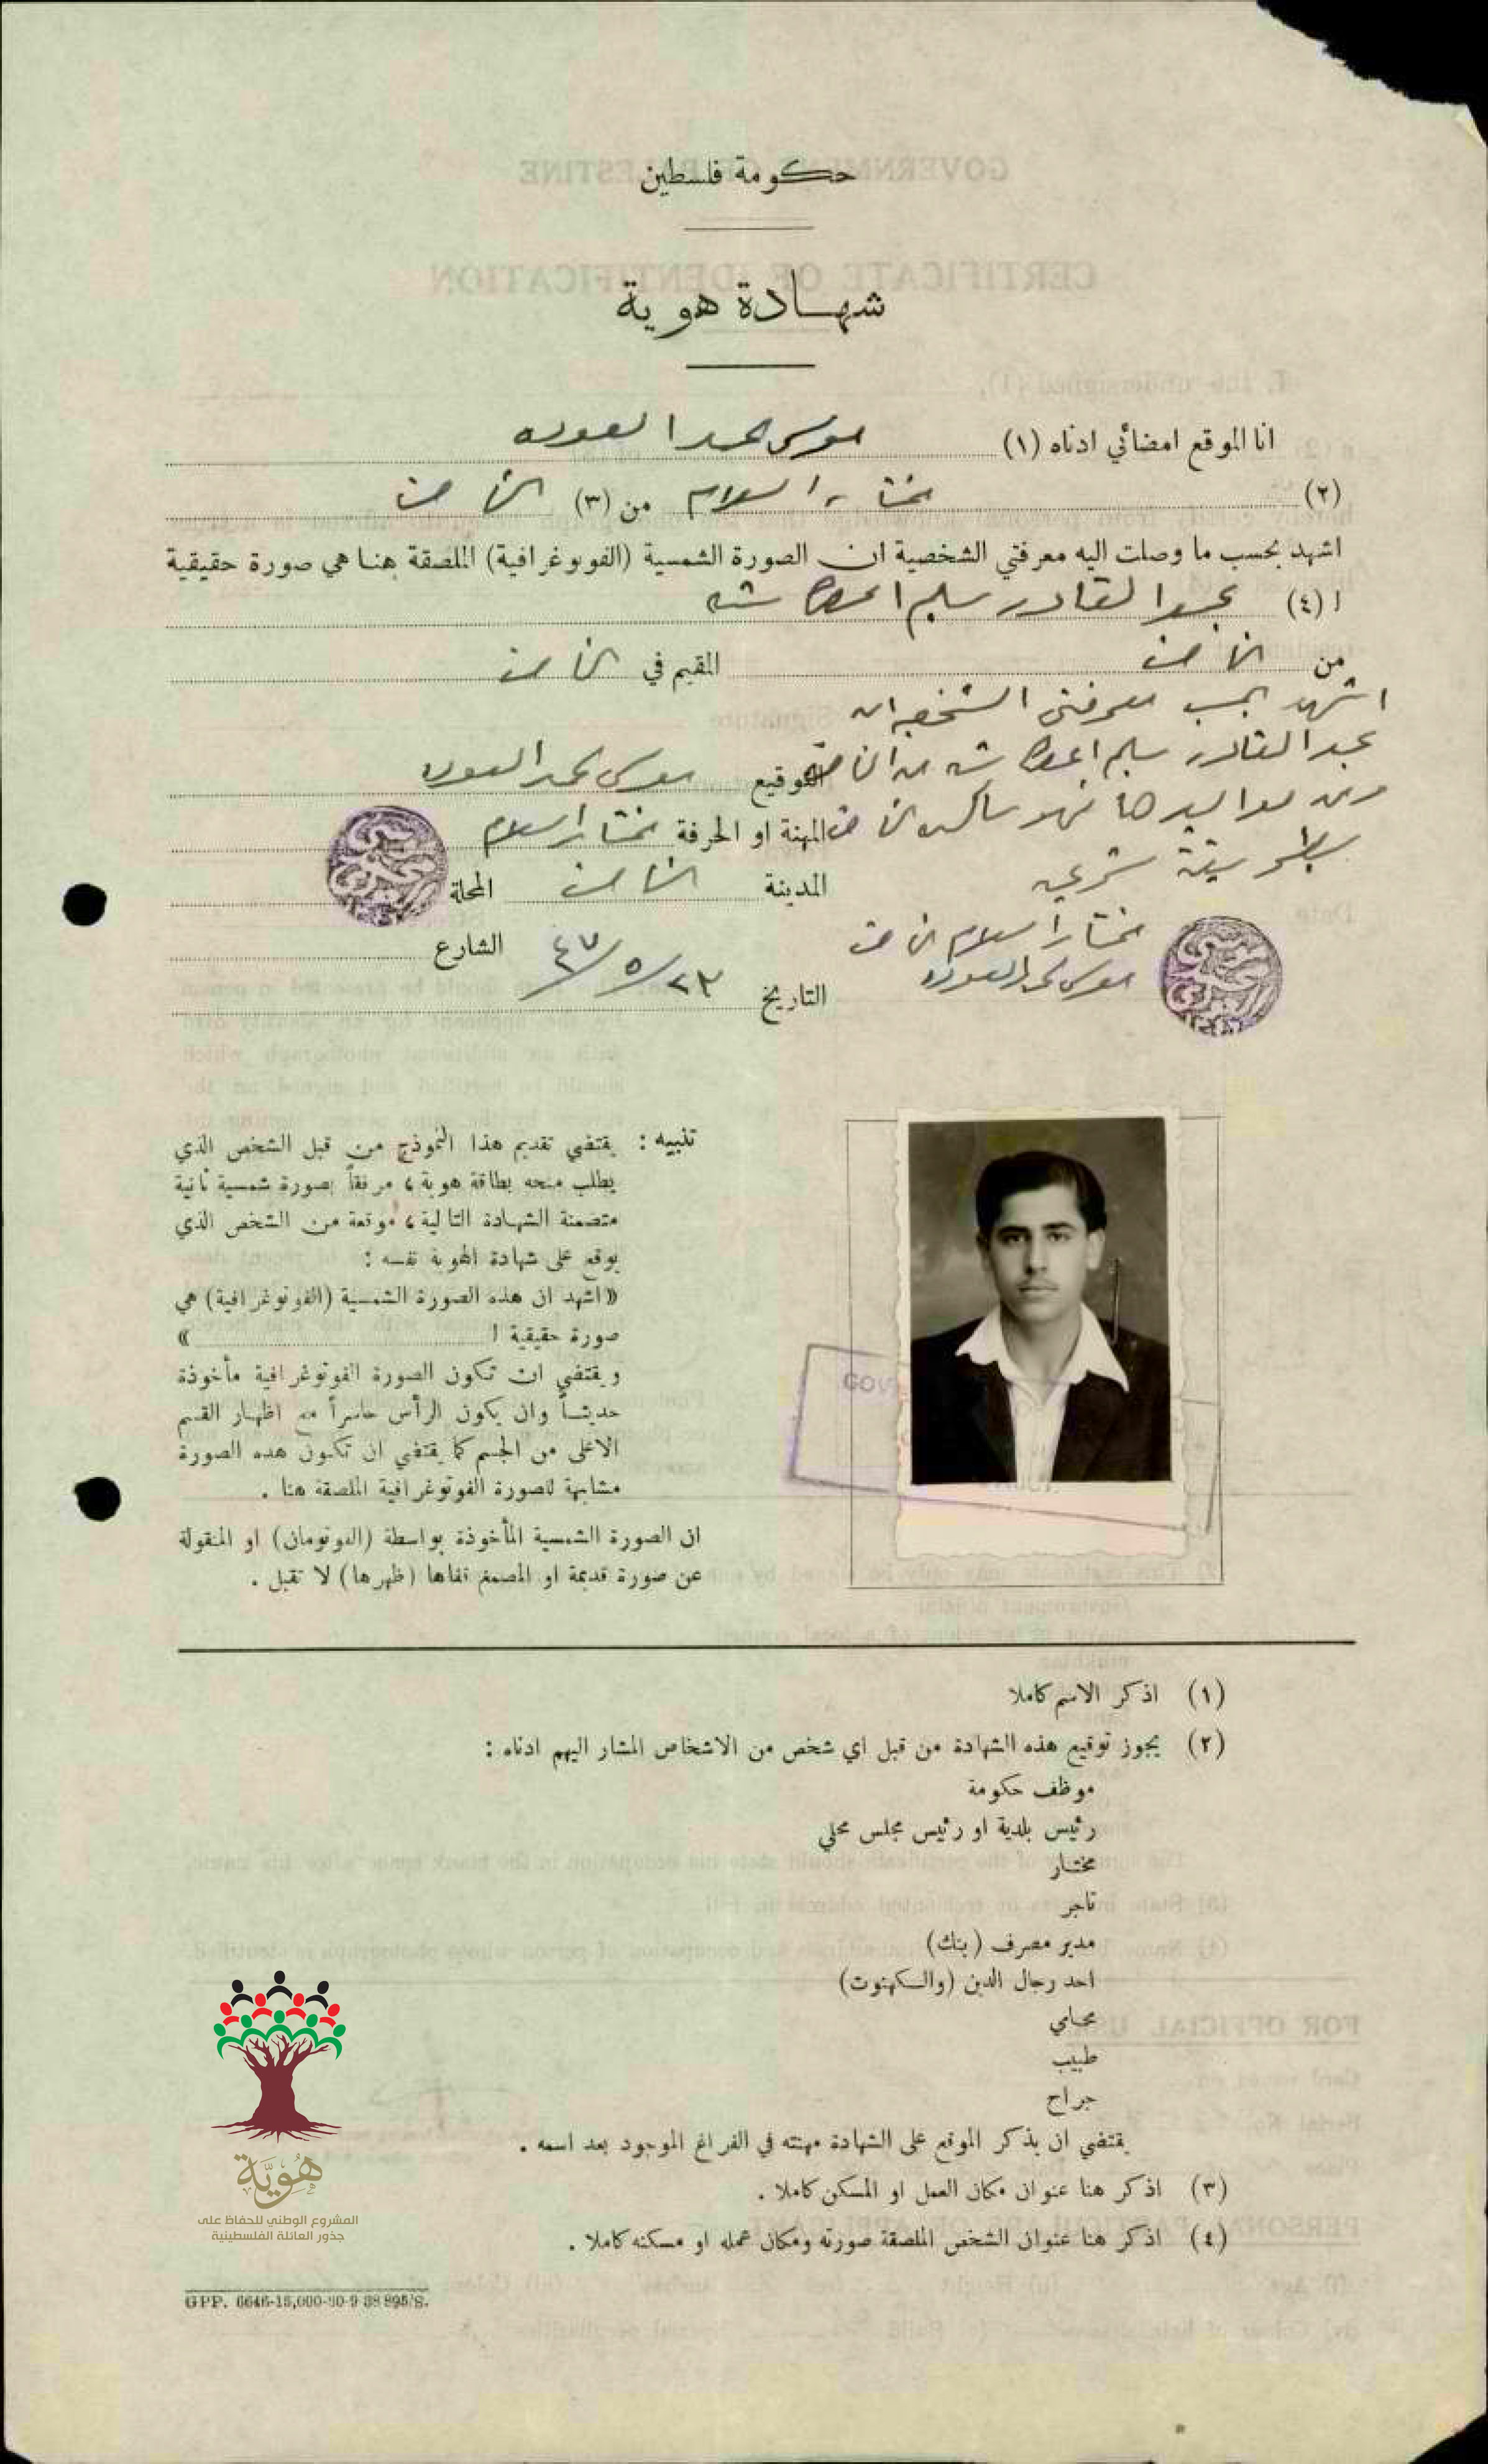 حكومة فلسطين
شهادة هوية
انا الموقع امضائي ادناه (١) موسى محمد العوده
(٢) مختار السلام من (٣)
اشهد بحسب ما وصلت اليه معرفتي الشخصية ان الصورة الشمسية (الفوتوغرافية) الملصقة هنا هي صورة حقيقية
ا (٤) عبد القادر سليم
من المقيم في
اشهد بحسب معرفتي الشخصيه ان
عبد القادر سليم
التوقيع موسى محمد العوده
ومن مواليدها فهو ساكن
المهنة او الحرفة مختار السلام
بطريقة شرعيه
المدينة المحلة
مختار السلام
موسى محمد العوده
الشارع
التاريخ ٢٣/٥/٤٧
تنبيه : يقتضي تقديم هذا النموذج من قبل الشخص الذي
يطلب منحه بطاقة هوية ، مرفقاً بصورة شمسية ثانية
متضمنة الشهادة التالية ، موقعة من الشخص الذي
يوقع على شهادة الهوية نفسه :
« اشهد ان هذه الصورة الشمسية (الفوتوغرافية) هي
صورة حقيقية ا »
ويقتضي ان تكون الصورة الفوتوغرافية مأخوذة
حديثاً وان يكون الرأس حاسراً مع اظهار القسم
الاعلى من الجسم كما يقتضي ان تكون هذه الصورة
مشابهة للصورة الفوتوغرافية الملصقة هنا .
ان الصورة الشمسية المأخوذة بواسطة (الفوتومان) او المنقولة
عن صورة قديمة او المصمغ قفاها (ظهرها) لا تقبل .
GOV
(١) اذكر الاسم كاملا
(٢) يجوز توقيع هذه الشهادة من قبل اي شخص من الاشخاص المشار اليهم ادناه :
موظف حكومة
رئيس بلدية او رئيس مجلس محلي
مختار
تاجر
مدير مصرف (بنك)
احد رجال الدين (والكهنوت)
محامي
طبيب
جراح
يقتضي ان يذكر الموقع على الشهادة مهنته في الفراغ الموجود بعد اسمه .
(٣) اذكر هنا عنوان مكان العمل او المسكن كاملا .
(٤) اذكر هنا عنوان الشخص الملصقة صورته ومكان عمله او مسكنه كاملا .
هُويَّة
المشروع الوطني للحفاظ على
جذور العائلة الفلسطينية
GPP. 6646-15,000-30-9 38 895/S.